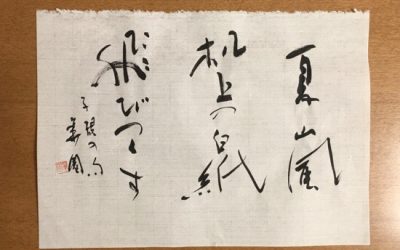 夏嵐
机上の白紙
飛びつくす
子規の句